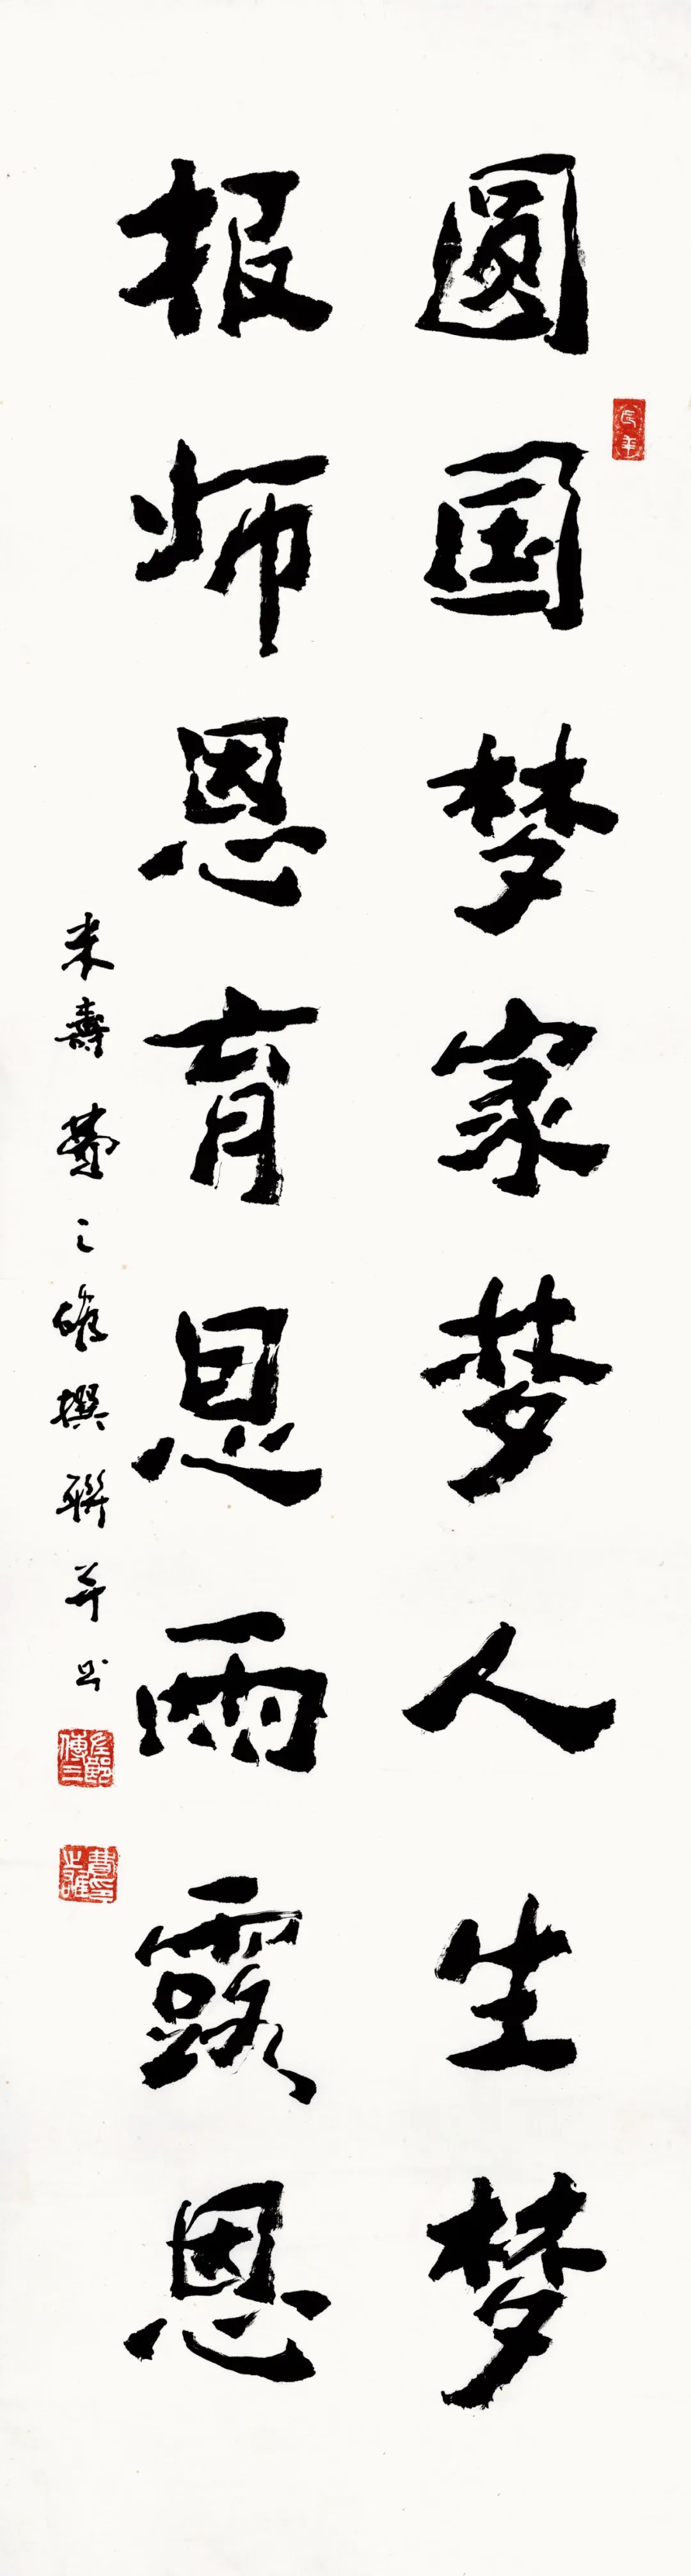 圓国梦家梦人生梦
报师恩育恩雨露恩
米壽费之雄撰聯并书